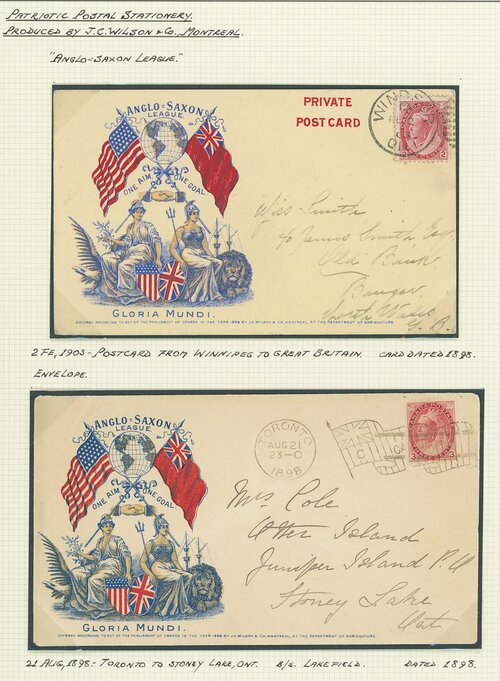 PATRIOTIC POSTAL STATIONERY.
PRODUCED BY J.C. WILSON & CO., MONTREAL.
"ANGLO-SAXON LEAGUE."
ANGLO-SAXON
LEAGUE
ONE AIM ONE GOAL
GLORIA MUNDI.
ENTERED ACCORDING TO ACT OF THE PARLIAMENT OF CANADA IN THE YEAR 1898 BY J.C. WILSON & CO. MONTREAL, AT THE DEPARTMENT OF AGRICULTURE.
PRIVATE
POST CARD
2 2
Miss Smith
c/o James Smith Esq
Old Bank
Bangor
North Wales
G. B.
2 FE, 1903 - POSTCARD FROM WINNIPEG TO GREAT BRITAIN. CARD DATED 1898.
ENVELOPE.
ANGLO-SAXON
LEAGUE
ONE AIM ONE GOAL
GLORIA MUNDI.
ENTERED ACCORDING TO ACT OF THE PARLIAMENT OF CANADA IN THE YEAR 1898 BY J.C. WILSON & CO. MONTREAL, AT THE DEPARTMENT OF AGRICULTURE.
TORONTO
AUG 21
23-0
1898
C
Mrs Cole
Otter Island
Juniper Island P.O
Stoney Lake
Ont
21 AUG, 1898:- TORONTO TO STONEY LAKE, ONT. B/S. LAKEFIELD. DATED 1898.